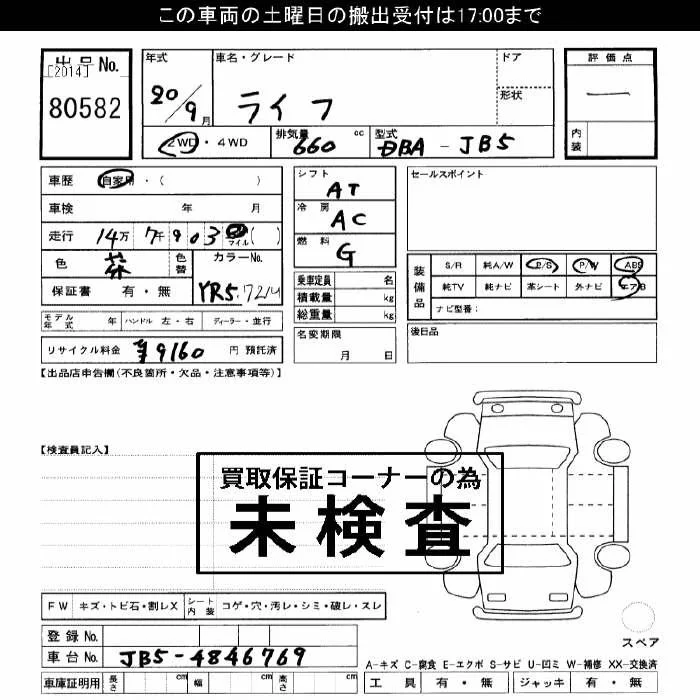 この車両の土曜日の搬出受付は17:00まで
出品No. [2014] 80582
年式 20/9月
車名・グレード ライフ
ドア
形状
評価点 一
内装
2WD・4WD
排気量 660 cc
型式 DBA-JB5
車歴 自家用・( )
車検 年 月
走行 14万 7千 903 マイル( )
色 茶 色替
カラーNo. YR5
保証書 有・無
モデル年式 年
ハンドル 左・右
ディーラー・並行
リサイクル料金 ¥9160 円 預託済
シフト AT
冷房 AC
燃料 G
乗車定員 名
積載量 kg
総重量 kg
名変期限 月 日
セールスポイント
装備品
S/R 純A/W P/S P/W ABS
純TV 純ナビ 革シート 外ナビ エアB
ナビ型番:
後日品
【出品店申告欄(不良箇所・欠品・注意事項等)】
【検査員記入】
買取保証コーナーの為
未検査
FW キズ・トビ石・割レX
シート内装 コゲ・穴・汚レ・シミ・破レ・スレ
登録No.
車台No. JB5-4846769
車庫証明用 長さ cm 幅 cm 高さ cm
スペア
A-キズ C-腐食 E-エクボ S-サビ U-凹ミ W-補修 XX-交換済
工具 有・無 ジャッキ 有・無